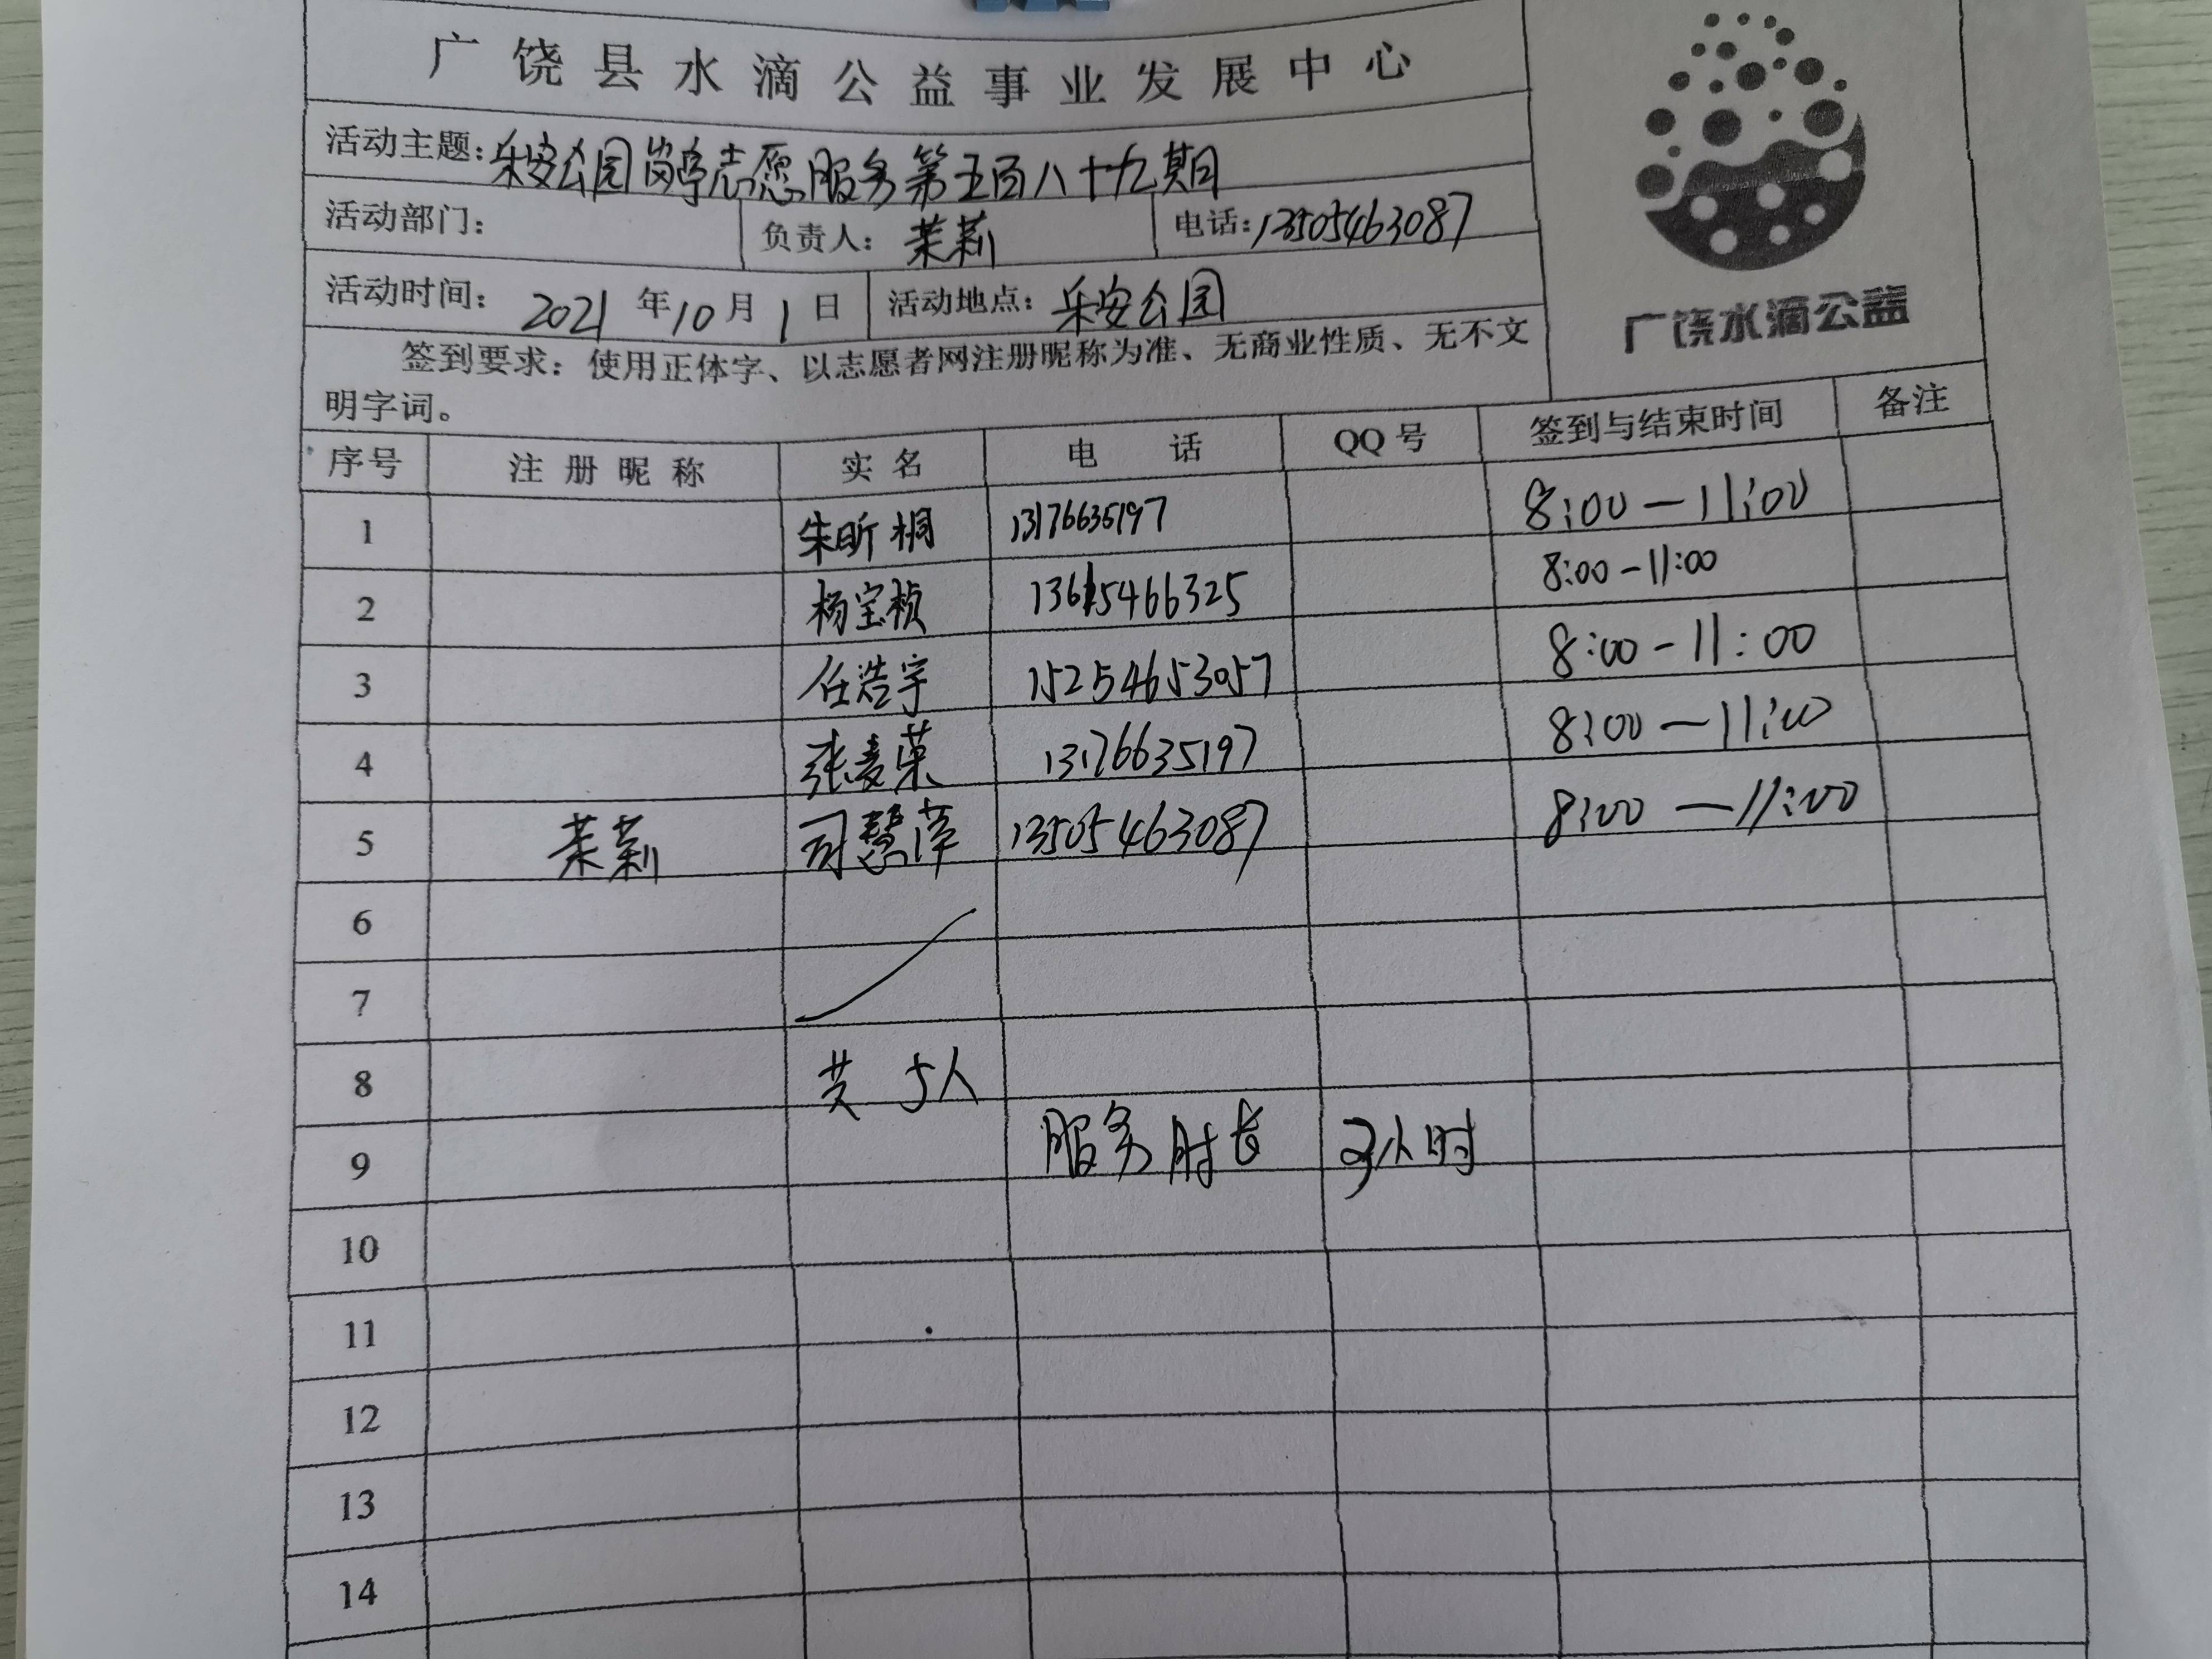 广饶县水滴公益事业发展中心
活动主题:乐安公园岗亭志愿服务第五百八十九期
活动部门: 负责人: 茉莉 电话:13505463087
活动时间: 2021年10月1日 活动地点: 乐安公园
广饶水滴公益
签到要求: 使用正体字、以志愿者网注册昵称为准、无商业性质、无不文
明字词。
序号 注册昵称 实名 电话 QQ号 签到与结束时间 备注
1 朱昕桐 13176635197 8:00—11:00
2 杨宝桢 13615466325 8:00-11:00
3 任浩宇 15254653057 8:00-11:00
4 张麦菓 13176635197 8:00—11:00
5 茉莉 司慧萍 13505463087 8:00—11:00
6
7
8 共 5人
9 服务时长 3小时
10
11
12
13
14